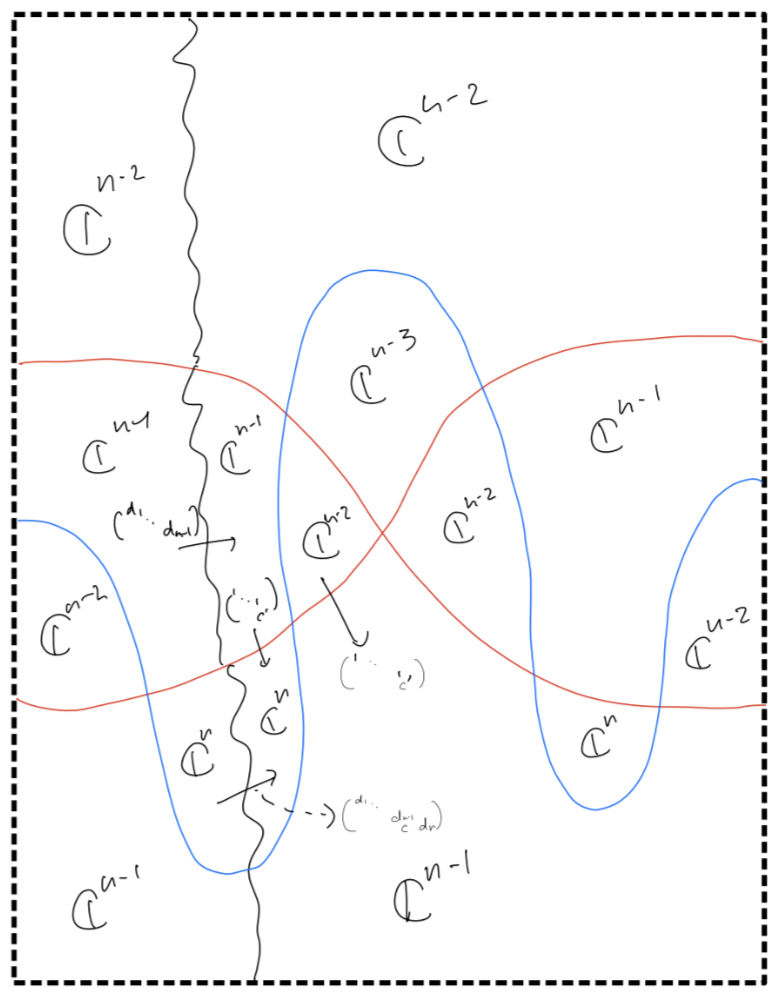 ℂⁿ⁻²
ℂⁿ⁻²
ℂⁿ⁻³
ℂⁿ⁻¹
ℂⁿ⁻¹
ℂⁿ⁻¹
(d₁ ⋱ dₙ₋₁)
ℂⁿ⁻²
ℂⁿ⁻²
ℂⁿ⁻²
ℂⁿ⁻²
ℂⁿ
ℂⁿ
ℂⁿ
(d₁ ⋱ dₙ₋₁ c dₙ)
ℂⁿ⁻¹
ℂⁿ⁻¹